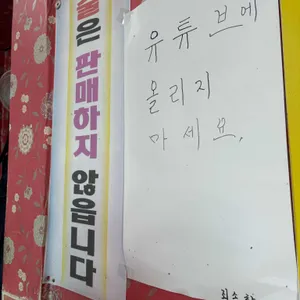 은 판매하지 않습니다
유튜브에
올리지
마세요.